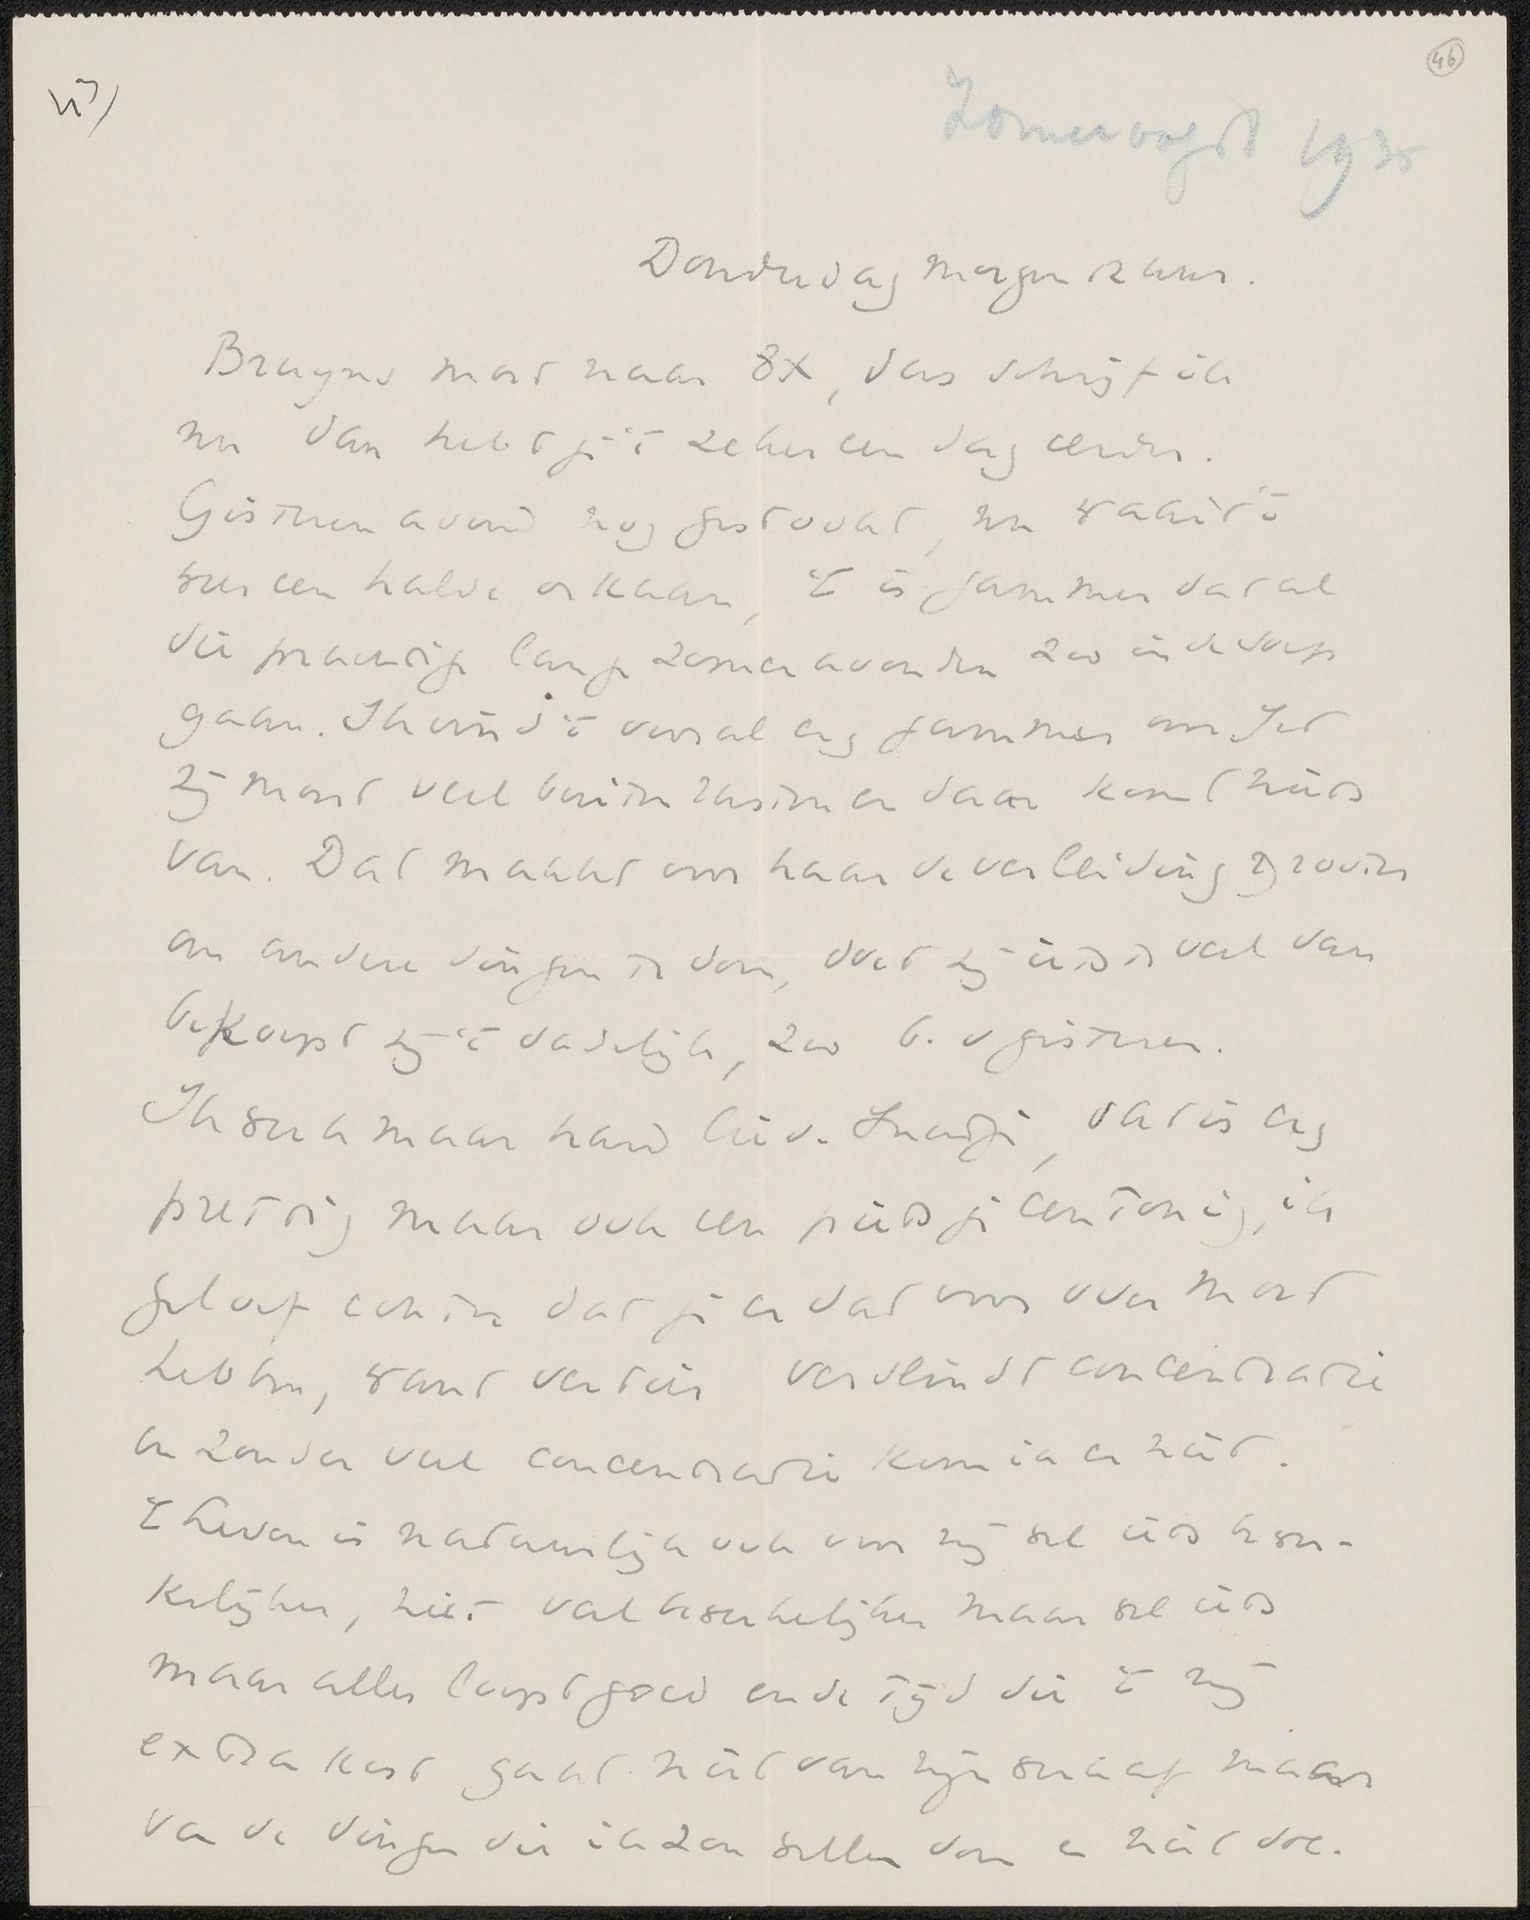 46
Zomer 1935
Donderdag morgen 12 uur.
Bruyns moet naar , dus schrijf ik
nu dan hebt je 't zeker een dag eerder.
Gisteren avond nog gestookt, nu waait 't
weer een halve orkaan, 't is jammer dat al
die prachtige lange zomeravonden zoo in de soep
gaan. Ik vind 't vooral erg jammer voor Jet
zij moet veel buiten rusten en daar komt niets
van. Dat maakt voor haar de verleiding grooter
om andere dingen te doen, doet zij iets te veel dan
bekoopt zij 't dadelijk, zoo b.v gisteren.
Ik werk maar hard lieve , dat is erg
prettig maar ook een pietsje eentonig, ik
geloof echter dat je er dat voor over moet
hebben, want vertier verslindt concentratie
en zonder veel concentratie kom ik er niet.
't Leven is natuurlijk ook voor mij wel iets bewer-
kelijker, niet veel bewerkelijker maar wel iets
maar alles loopt goed en de tijd die 't mij
extra kost gaat niet van mijn werk af maar
van de dingen die ik zou willen doen en niet doe.